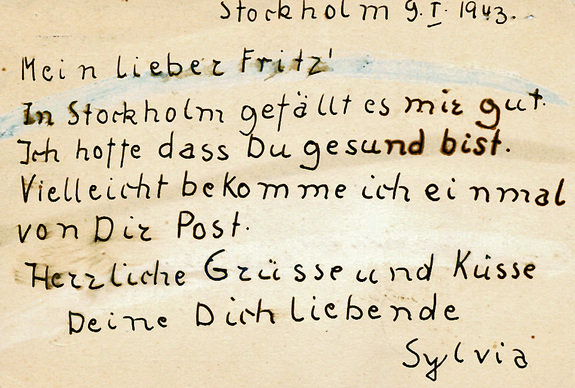 Stockholm 9.I.1943.
Mein lieber Fritz!
In Stockholm gefällt es mir gut.
Ich hoffe dass Du gesund bist.
Vielleicht bekomme ich einmal
von Dir Post.
Herzliche Grüsse und Küsse
Deine Dich liebende
Sylvia